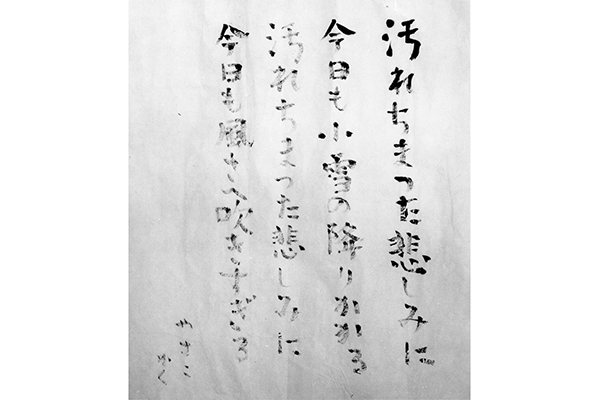 汚れちまつた悲しみに
今日も小雪の降りかかる
汚れちまつた悲しみに
今日も風さへ吹きすぎる